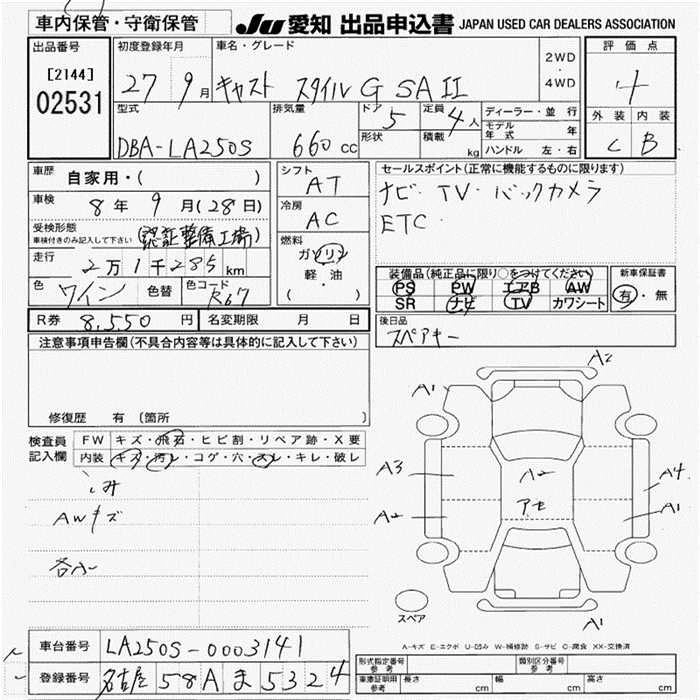 車内保管・守衛保管 JU 愛知 出品申込書 JAPAN USED CAR DEALERS ASSOCIATION
出品番号 初度登録年月 車名・グレード 2WD ・ 4WD 評価点
[2144] 02531 27 9月 キャスト スタイル G SAⅡ 4
型式 排気量 ドア 5 定員 4人 ディーラー・並行 外装 内装
DBA-LA250S 660cc 形状 積載 kg モデル年式 年 ハンドル 左・右 C B
車歴 自家用・( ) シフト AT セールスポイント(正常に機能するものに限ります)
車検 8年 9月(28日) 冷房 AC ナビ・TV・バックカメラ
受検形態 車検付きのみ記入して下さい (認証整備工場) ETC・
走行 2万1千285km 燃料 ガソリン 軽・油 ( ・ )
色 ワイン 色替 色コード R67
装備品(純正品に限り○をつけてください) 新車保証書
PS PW エアB AW 有・無
SR ナビ TV カワシート
R券 8,550円 名変期限 月 日 後日品
スペアキー
注意事項申告欄(不具合内容等は具体的に記入して下さい)
修復歴 有 [箇所
検査員記入欄 FW キズ・飛石・ヒビ割・リペア跡・X要
内装 キズ・汚レ・コゲ・穴・スレ・キレ・破レ
シミ
AWキズ
各小
A2
A1
A3 A2 A4
A2 アセ A1
A1
スペア
A-キズ E-エクボ U-凹み W-補修跡 S-サビ C-腐食 XX-交換済
車台番号 LA250S-0003141
登録番号 名古屋 58A ま 5324
形式指定番号 参考 類別区分番号 参考
車庫証明用 参考 長さ cm 幅 cm 高さ cm